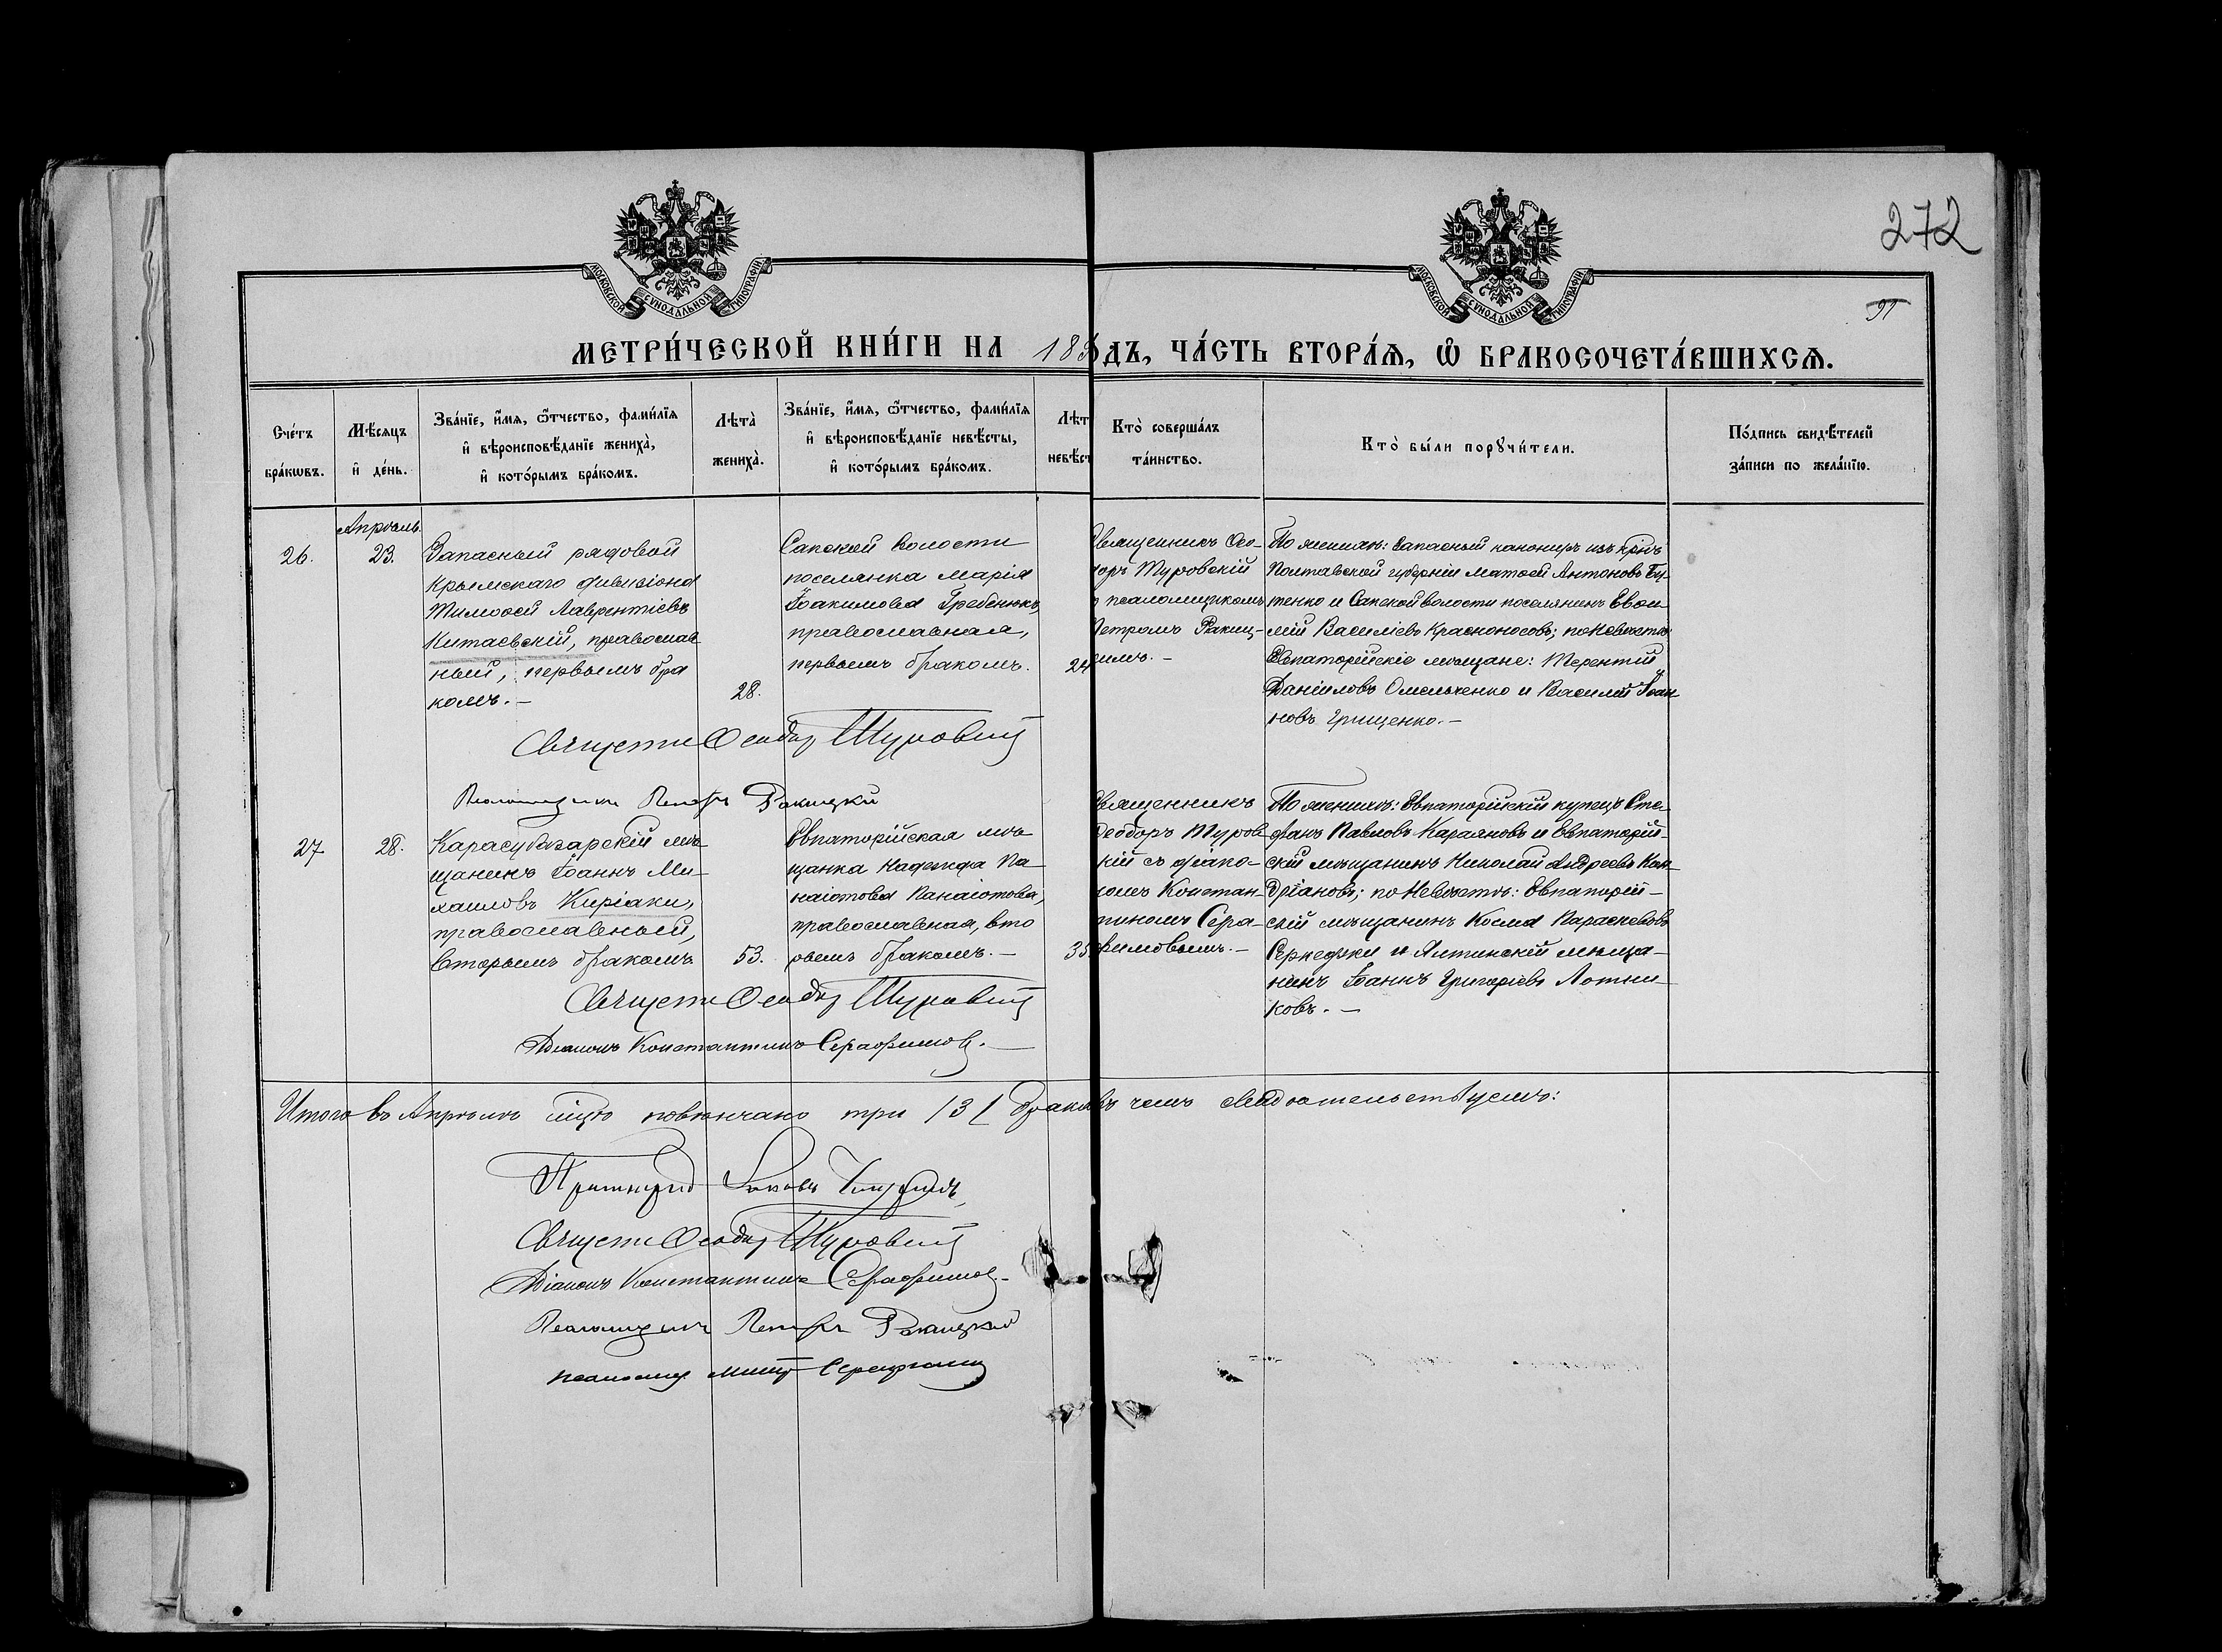 272
91
МОСКОВСКОЙ СѴНОДАЛЬНОЙ ТИПОГРАФІИ
МОСКОВСКОЙ СѴНОДАЛЬНОЙ ТИПОГРАФІИ
МЕТРИ́ЧЕСКОЙ КНИ́ГИ НА 18
ДЪ, ЧА́СТЬ ВТОРА́Ѧ, Ѽ БРАКОСОЧЕТА́ВШИХСѦ.
Сче́тъ
бра́кѡвъ.
Мѣ́сѧцъ
и҆ де́нь.
Зва́нїе, и҆́мѧ, ѻ҆́тчество, фами́лїѧ
и҆ вѣроисповѣ́данїе жениха̀,
и҆ кото́рымъ бра́комъ.
Лѣта̀
жениха̀.
Зва́нїе, и҆́мѧ, ѻ҆́тчество, фами́лїѧ
и҆ вѣроисповѣ́данїе невѣ́сты,
и҆ кото́рымъ бра́комъ.
Лѣт
невѣ́ст
Кто̀ соверша́лъ
та́инство.
Кто̀ бы́ли порꙋчи́тели.
По́дпись свидѣ́телей
за́писи по жела́нїю.
26.
Апрѣль.
23.
Запасный рядовой
Крымскаго дивизіона
Тимоѳей Лаврентіевъ
Китаевскій, православ
ный, первымъ бра
комъ. –
28.
Сакской волости
поселянка Марія
Іоакимова Гребенюкъ,
православная,
первымъ бракомъ.
24
Священникъ Ѳео-
доръ Туровскій
псаломщикомъ
Петромъ Ракиц-
кимъ. –
По женихѣ: Запасный канониръ изъ крнъ
Полтавской губерніи Матѳей Антоновъ Бу-
тенко и Сакской волости поселянинъ Евѳи-
мій Василіевъ Красноносовъ; по невѣстѣ:
Евпаторійскіе мѣщане: Терентій
Даніиловъ Омельченко и Василій Іоан
новъ Грищенко. –
Священ Ѳеодор Туровскій
Псаломщикъ Петръ Ракицкій
27
28.
Карасубазарскій мѣ-
щанинъ Іоаннъ Ми-
хаиловъ Киріаки,
православный,
вторымъ бракомъ.
53.
Евпаторійская мѣ-
щанка Надежда Па-
наіотова Панаіотова,
православная, вто
рымъ бракомъ. –
35.
Священникъ
Ѳеодоръ Туров-
кій съ діако-
номъ Констан-
тиномъ Сера-
фимовымъ. –
По женихѣ: Евпаторійскій купецъ Сте-
фанъ Павловъ Караяновъ и Евпаторій-
скій мѣщанинъ Николай Андреевъ Кан-
дріановъ; по невѣстѣ: Евпаторій-
скій мѣщанинъ Косма Параскевовъ
Серкеджи и Ялтинскій мѣща-
нинъ Іоаннъ Григоріевъ Лотни-
ковъ. –
Священ Ѳеодор Туровскій
Діаконъ Константинъ Серафимовъ. –
Итого въ Апрѣлѣ мцѣ повѣнчано три /3/ браковъ чемъ свидѣтельствуемъ:
Протоіерей Іаковъ
Священ Ѳеодор Туровскій
Діаконъ Константинъ Серафимовъ
Псаломщикъ Петръ Ракицкій
псаломщ